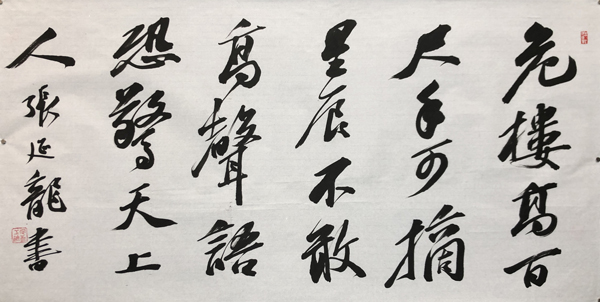 危樓高百
尺手可摘
星辰不敢
高聲語
恐驚天上
人張延龍書